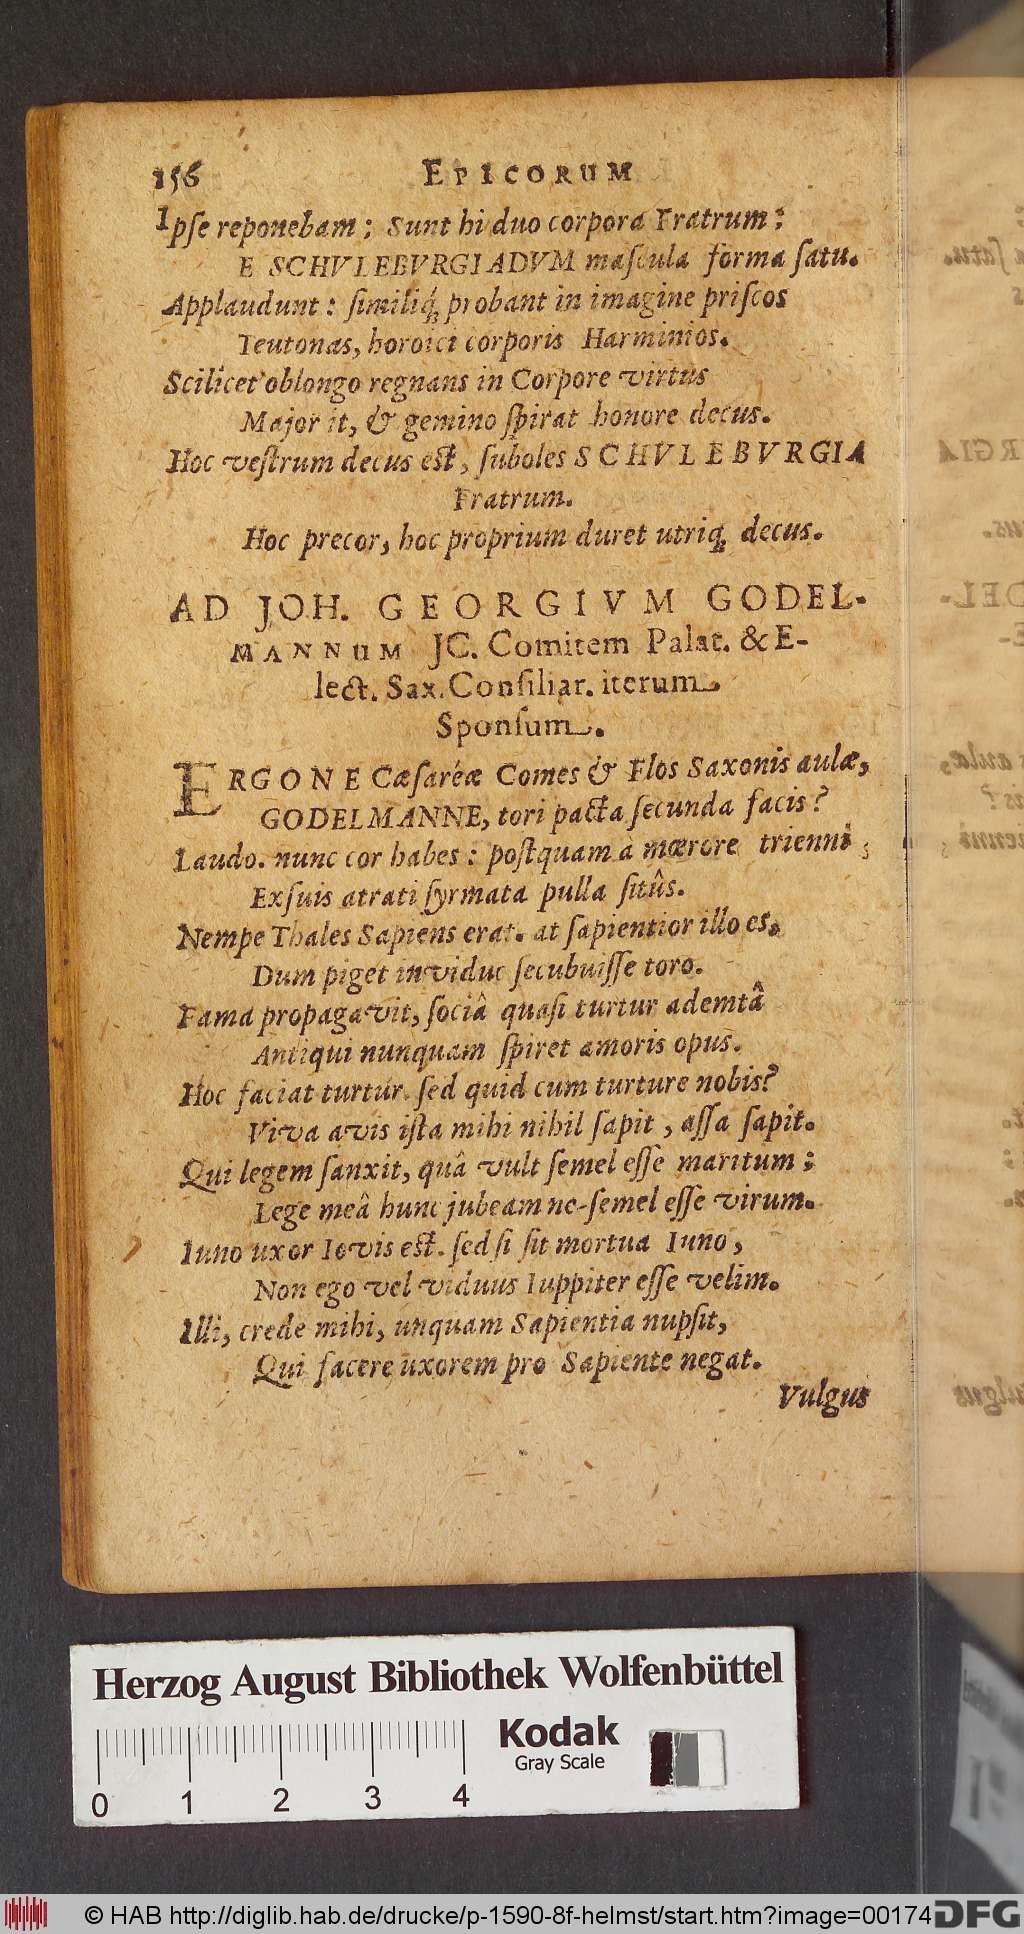 156 EPICORUM
Ipſe reponebam: Sunt hi duo corpora Fratrum:
E SCHVLEBVRGIADVM maſcula forma ſatu.
Applaudunt: ſimiliq́; probant in imagine priſcos
Teutonas, horoici corporis Harminios.
Scilicet oblongo regnans in Corpore virtus
Major it, & gemino ſpirat honore decus.
Hoc veſtrum decus eſt, ſuboles SCHVLEBVRGIA
Fratrum.
Hoc precor, hoc proprium duret utriq; decus.
AD JOH. GEORGIVM GODEL-
MANNUM JC. Comitem Palat. & E-
lect. Sax. Conſiliar. iterum
Sponſum.
ERGONE Cæſaréæ Comes & Flos Saxonis aulæ,
GODELMANNE, tori pacta ſecunda facis?
Laudo. nunc cor habes: poſtquam a mœrore trienni,
Exſuis atrati ſyrmata pulla ſitûs.
Nempe Thales Sapiens erat. at ſapientior illo es.
Dum piget in viduo ſecubuiſſe toro.
Fama propagavit, ſociâ quaſi turtur ademtâ
Antiqui nunquam ſpiret amoris opus.
Hoc faciat turtur. ſed quid cum turture nobis?
Viva avis iſta mihi nihil ſapit, aſſa ſapit.
Qui legem ſanxit, quâ vult ſemel eſſe maritum;
Lege meâ hunc jubeam ne-ſemel eſſe virum.
Iuno uxor Iovis eſt. ſed ſi ſit mortua Iuno,
Non ego vel viduus Iuppiter eſſe velim.
Illi, crede mihi, unquam Sapientia nupſit,
Qui facere uxorem pro Sapiente negat.
Vulgus
Herzog August Bibliothek Wolfenbüttel
Kodak
Gray Scale
0 1 2 3 4
© HAB http://diglib.hab.de/drucke/p-1590-8f-helmst/start.htm?image=00174
DFG